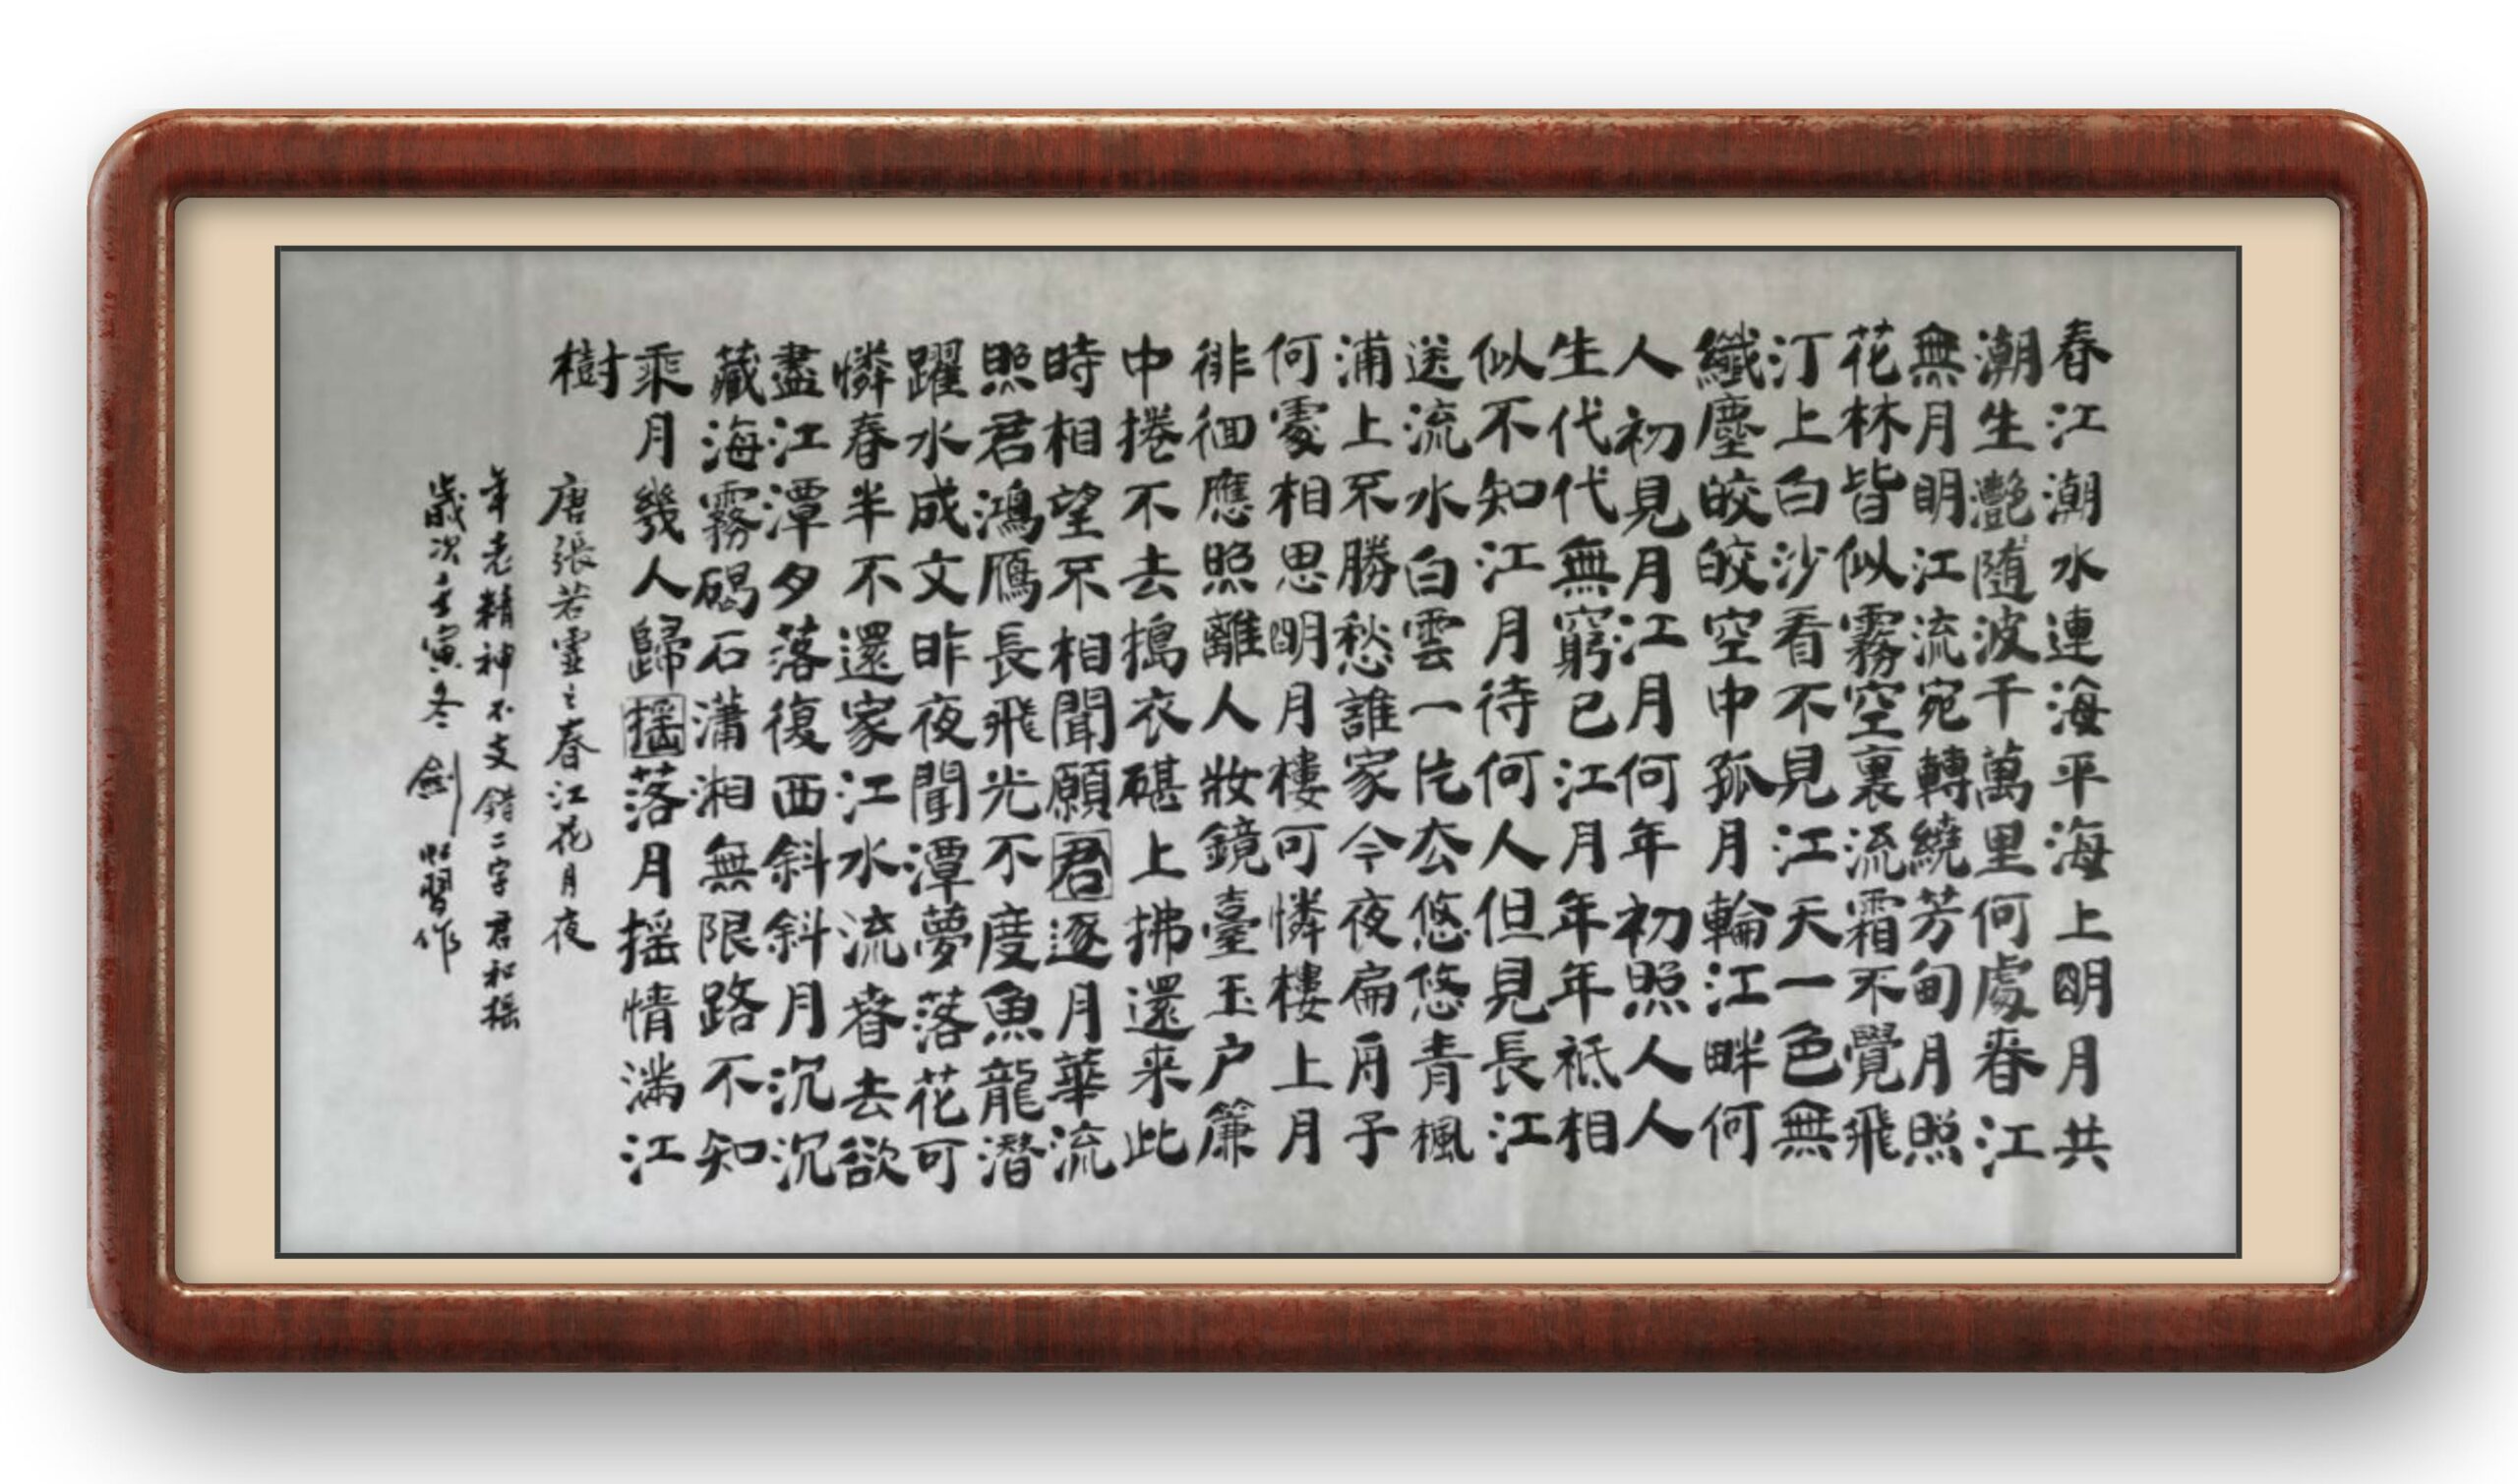 春江潮水連海平海上明月共
潮生灧隨波千萬里何處春江
無月明江流宛轉繞芳甸月照
花林皆似霧空裏流霜不覺飛
汀上白沙看不見江天一色無
纖塵皎皎空中孤月輪江畔何
人初見月江月何年初照人人
生代代無窮已江月年年祗相
似不知江月待何人但見長江
送流水白雲一片去悠悠青楓
浦上不勝愁誰家今夜扁舟子
何處相思明月樓可憐樓上月
徘徊應照離人妝鏡臺玉户簾
中捲不去搗衣碪上拂還来此
時相望不相聞願君逐月華流
照君鴻雁長飛光不度魚龍潛
躍水成文昨夜閒潭夢落花可
憐春半不還家江水流春去欲
盡江潭夕落復西斜斜月沉沉
藏海霧碣石瀟湘無限路不知
乘月幾人歸摇落月摇情滿江
樹
唐張若虛之春江花月夜
年老精神不支錯二字君和摇
歲次壬寅冬劍習作